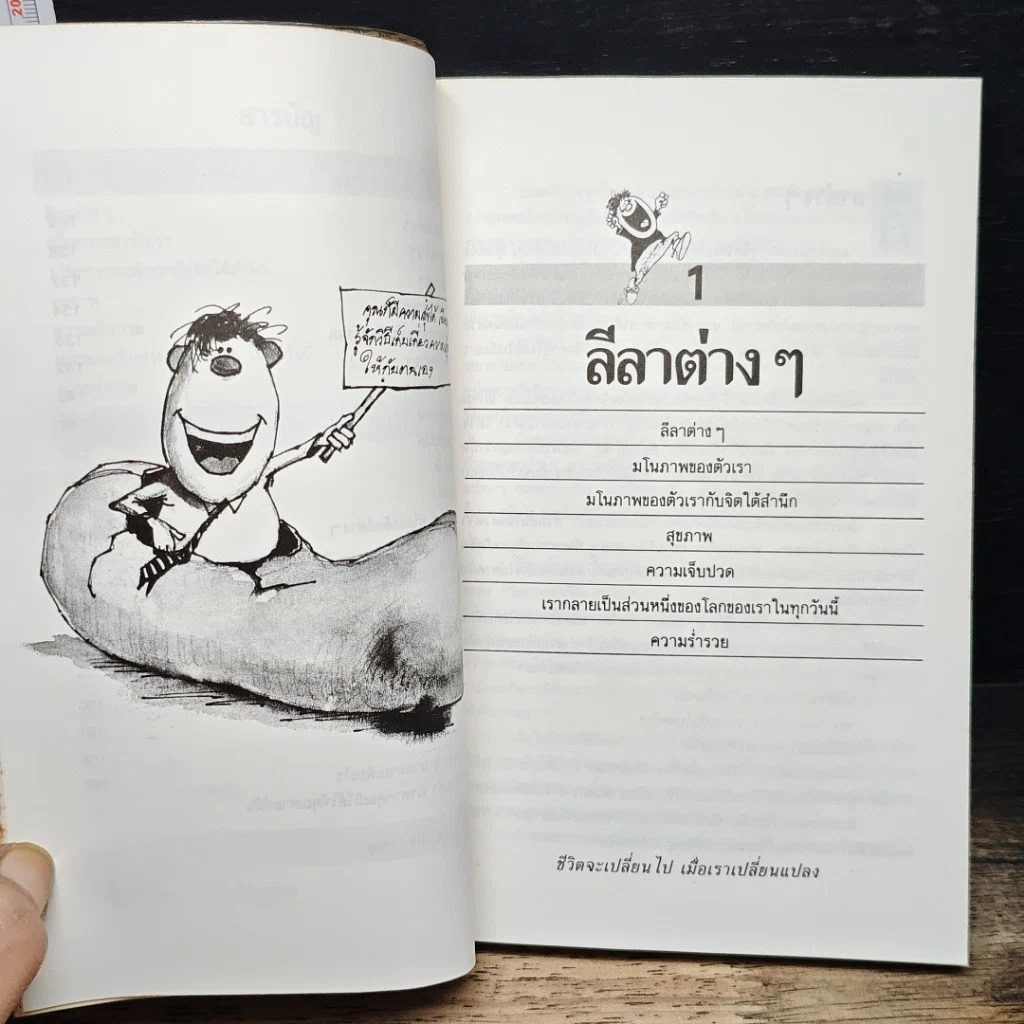 20
คุณก็มีความสุขได้
รู้จักวิธีเก็บเกี่ยว
ให้กับตนเอง
1
ลีลาต่าง ๆ
ลีลาต่าง ๆ
มโนภาพของตัวเรา
มโนภาพของตัวเรากับจิตใต้สำนึก
สุขภาพ
ความเจ็บปวด
เรากลายเป็นส่วนหนึ่งของโลกของเราในทุกวันนี้
ความร่ำรวย
ชีวิตจะเปลี่ยนไป เมื่อเราเปลี่ยนแปลง